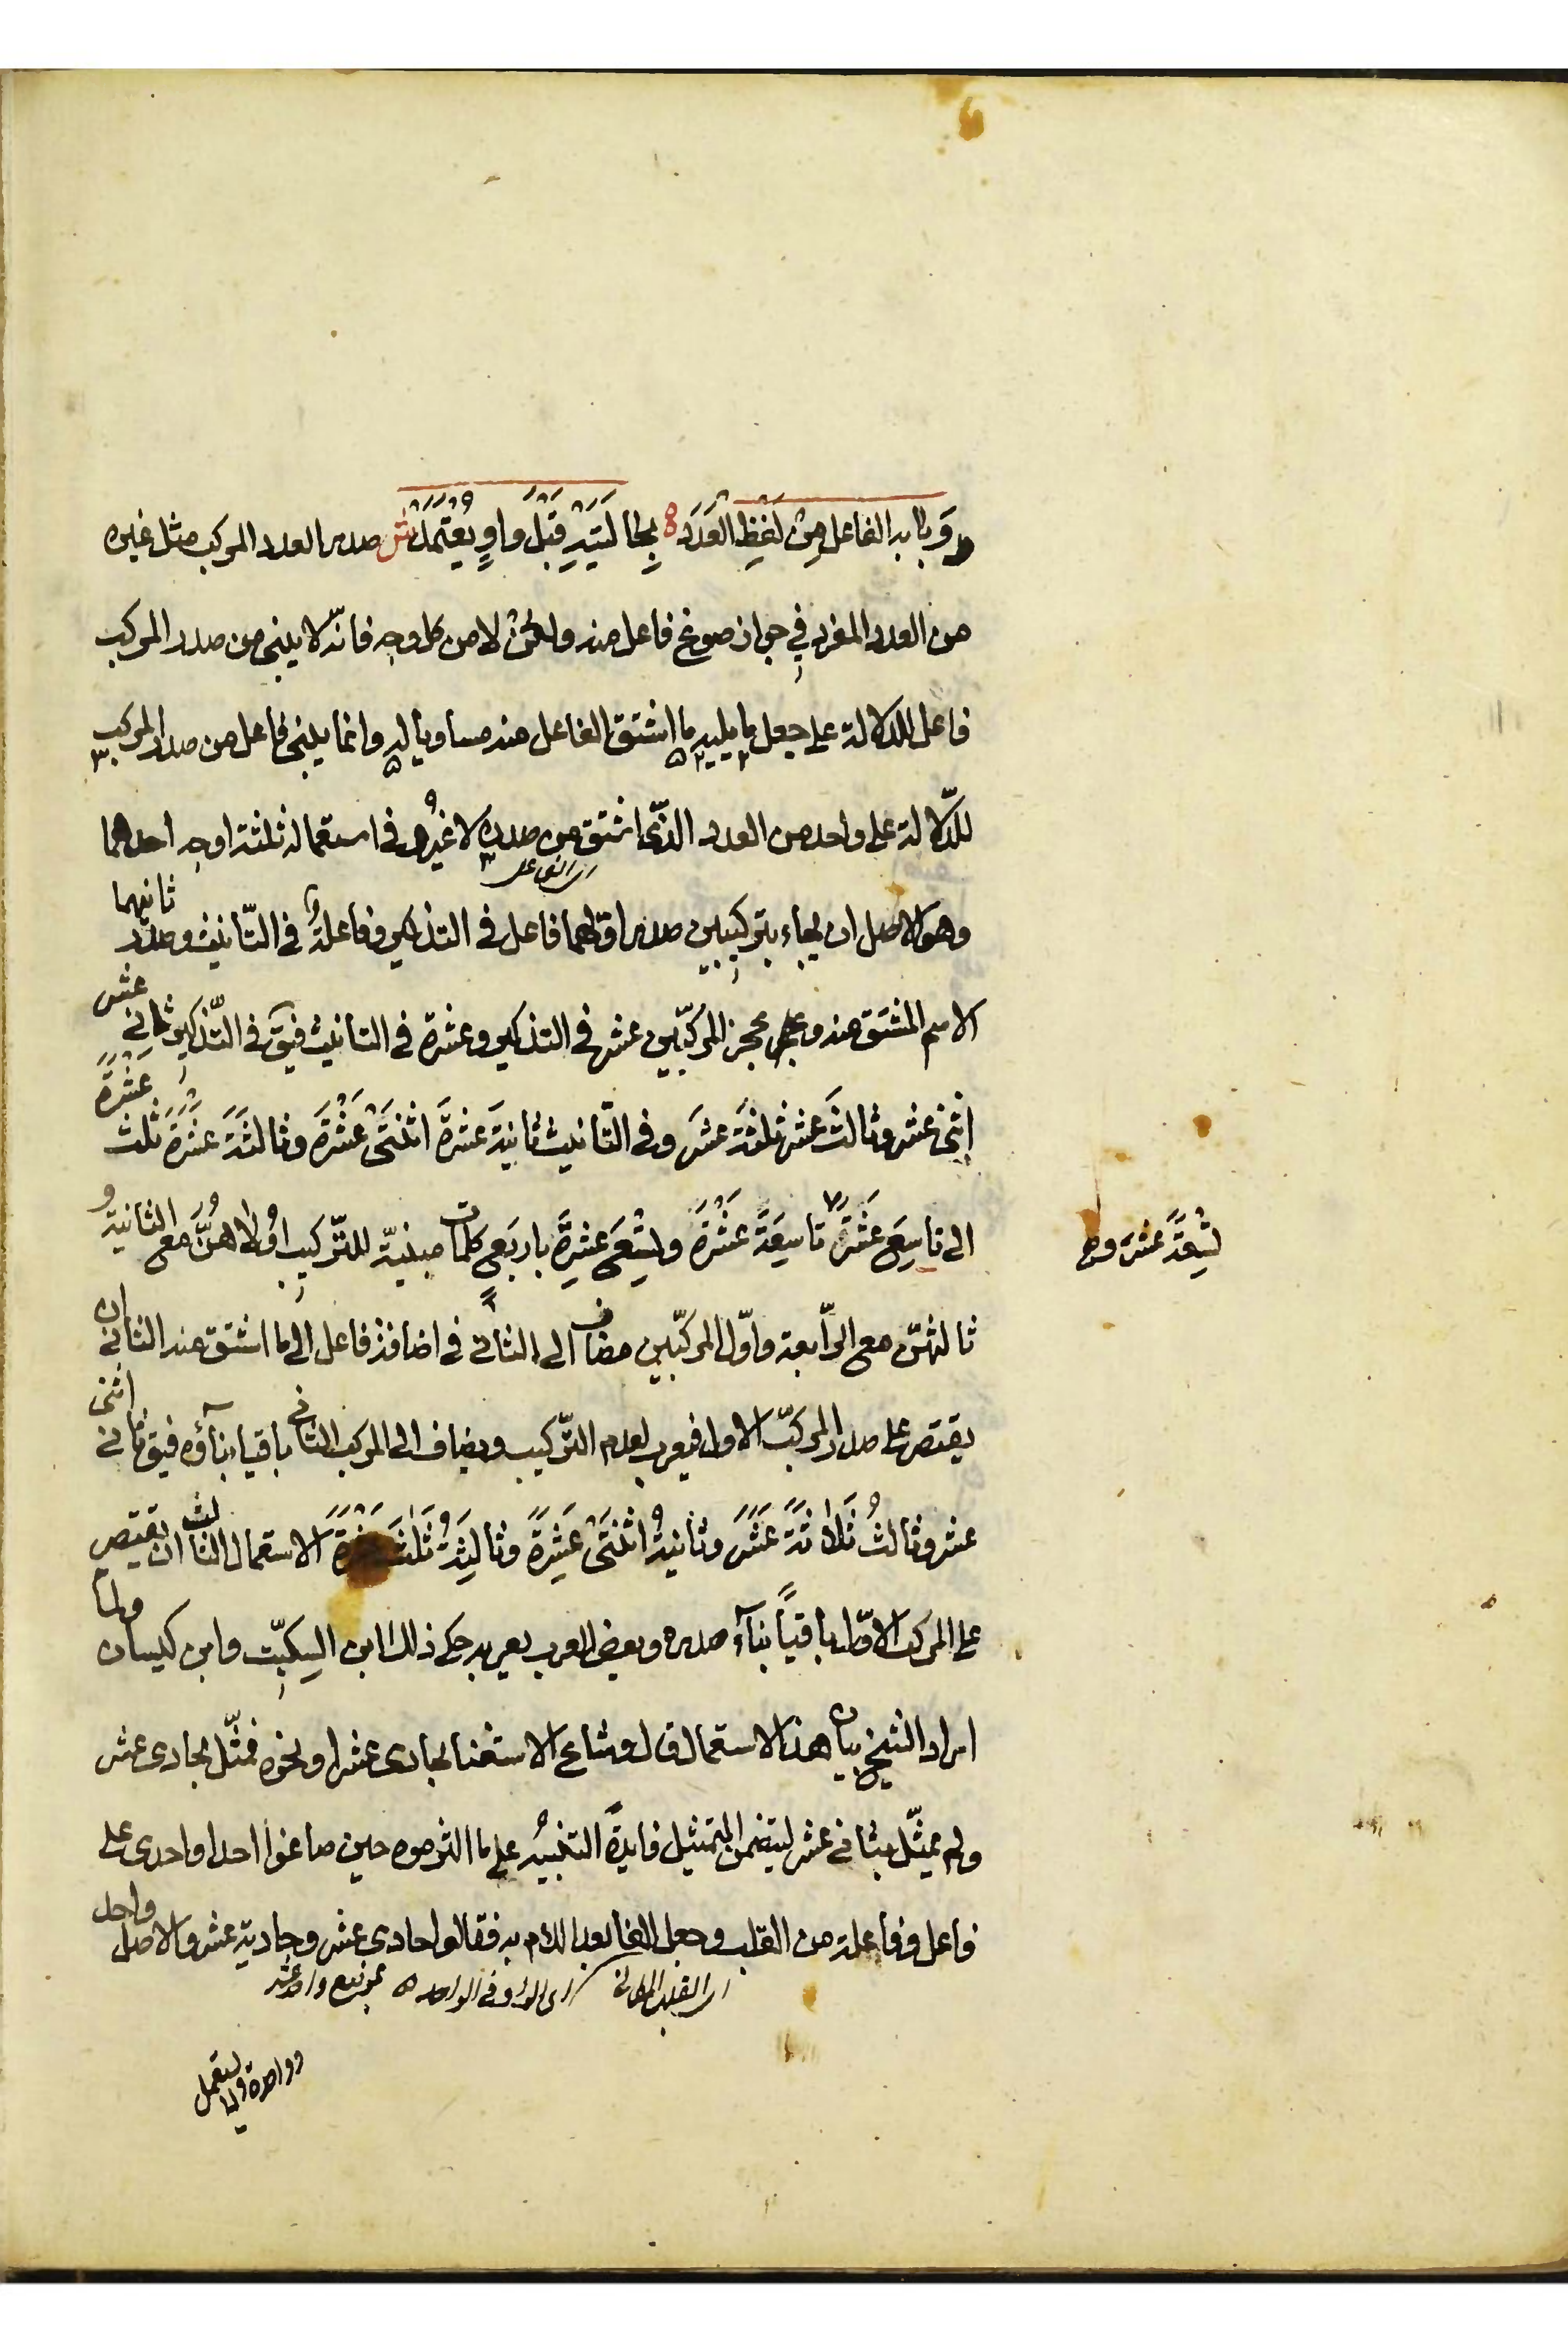 وَبَابَهُ الفاعل مِنْ لَفْظِ العَدَد بِحَالَتَيْهِ قَبْلَ واوٍ يُعْتَمَدْ ش صدر العدد المركب مثل غيره
من العدد المفرد في جواز صوغ فاعل منه ولكن لا من كل وجه فانّه لا يبنى من صدر المركب
فاعل للدلالة على جعل ما يليه ما اشتق الفاعل منه مساويا له وانما يبنى فاعل من صدر المركب
للدّلالة على واحد من العدد الذى اشتق من صدره لا غيرُ وفي استعماله ثلثة اوجه احدهما
اى الفاعل
وهو الاصل ان يجاء بتركيبين صدر اولهما فاعل في التذكير وفاعلة في التّانيث وصدر ثانيهما
الاسم المشتق منه وعجز المركّبين عشر في التذكير وعشرة في التانيث فيق في التّذكير ثانى عشر
اثنى عشر وثالثَ عشر ثلثةَ عشَر وفي التّانيث ثانيةَ عشرةَ اثنتَى عَشْرَةَ وثالثةَ عشَرةَ ثلثَ عشْرَةَ
الى تاسِعَ عَشَرَ تاسِعَةَ عَشْرَةَ وتِسْعَ عشرةَ باربَعِ كلمات مبنيّة للتّركيب اُولٰاهُنَّ مع الثانية و
تِسْعَةَ عشَر و
ثالثتهنّ مع الرّابعة واوّل المركبّين مضاف الى الثانى في اضافة فاعل الى ما اشتق منه الثانى ان
يقتصر على صدر المركبّ الاول فيعرب لعدم التّركيب ويضاف الى المركب الثانى باقيا بناؤه فيق ثانى اثنى
عشر وثالثُ ثَلاثةَ عَشَرَ وثانيةُ اثنَتَى عَشِرَةَ وثالِثَةُ ثَلٰثَ عَشْرَةَ الاستعمال الثالث ان يقتصر
على المركب الاوّل باقياً بناءُ صدره وبعض العرب يعربه حكى ذلك ابن السِكيّت وابن كيسان ولما
اراد الشيخ بيان هذا الاستعمال قال وشاع الاستغنا بحادى عشرا ونحوه فمثّل بحادى عشر
ولم يمثّل بثانى عشر ليتضمن التمثيل فايدة التنبيه على ما التزموه حين صاغوا احدا واحدى على
فاعل وفاعلة من القلب وجعل الفا بعد اللام به فقالوا حادى عشر وحادية عشر والاصل واحد
اى القلب المكانى اى الواو في الواحد
وواحدة ولا يستعمل